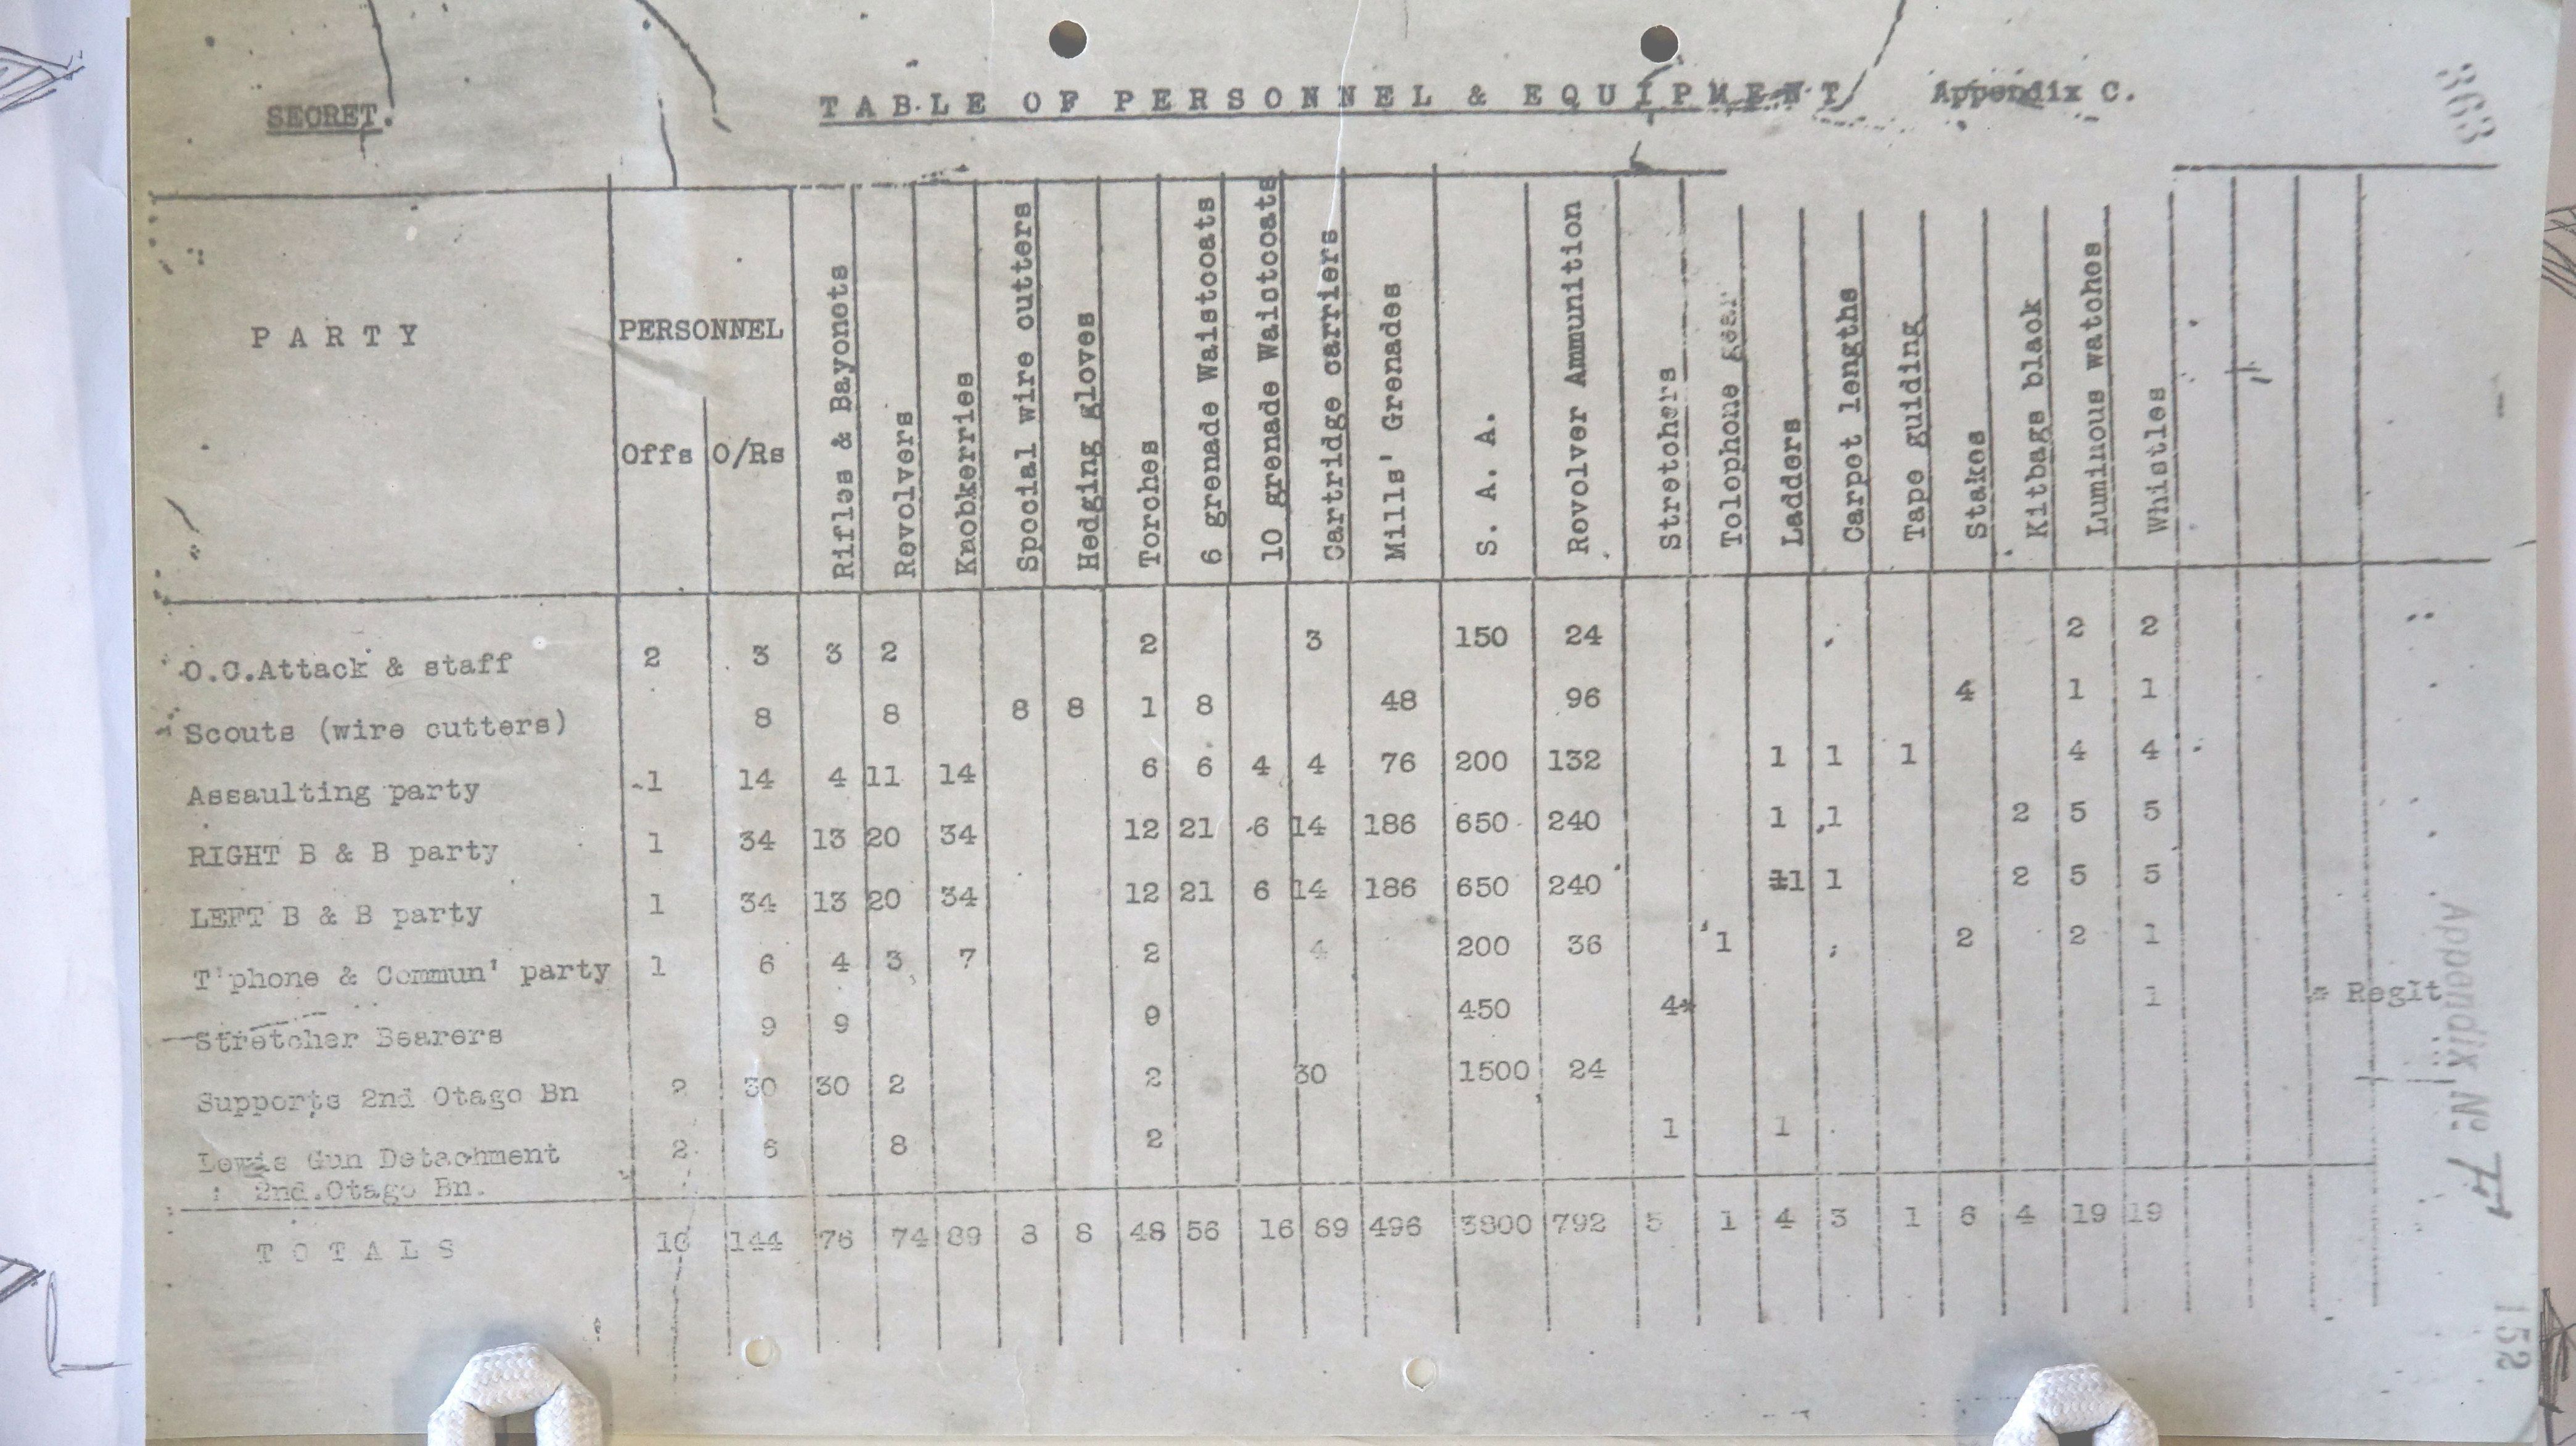 SECRET.
TABLE OF PERSONNEL & EQUIPMENT
Appendix C.
363
PARTY
PERSONNEL
Offs O/Rs
Rifles & Bayonets
Revolvers
Knobkerries
Special wire cutters
Hedging gloves
Torches
6 grenade Waistcoats
10 grenade Waictcoats
Cartridge carriers
Mills' Grenades
S. A. A.
Revolver Ammunition
Stretchers
Tolophone gear
Ladders
Carpet lengths
Tape guiding
Stakes
Kitbags black
Luminous watches
Whistles
O.C.Attack & staff 2 3 3 2 2 3 150 24 2 2
Scouts (wire cutters) 8 8 8 8 1 8 48 96 4 1 1
Assaulting party 1 14 4 11 14 6 6 4 4 76 200 132 1 1 1 4 4
RIGHT B & B party 1 34 13 20 34 12 21 6 14 186 650 240 1 1 2 5 5
LEFT B & B party 1 34 13 20 34 12 21 6 14 186 650 240 1 1 2 5 5
T'phone & Commun' party 1 6 4 3 7 2 4 200 36 1 2 2 1
Stretcher Bearers 9 9 9 450 4* 1 * Reglt
Supports 2nd Otago Bn 2 30 30 2 2 30 1500 24
Lewis Gun Detachment 2 6 8 2 1 1
2nd.Otago Bn.
TOTALS 10 144 76 74 89 8 8 48 56 16 69 496 3800 792 5 1 4 3 1 6 4 19 19
Appendix No.
152